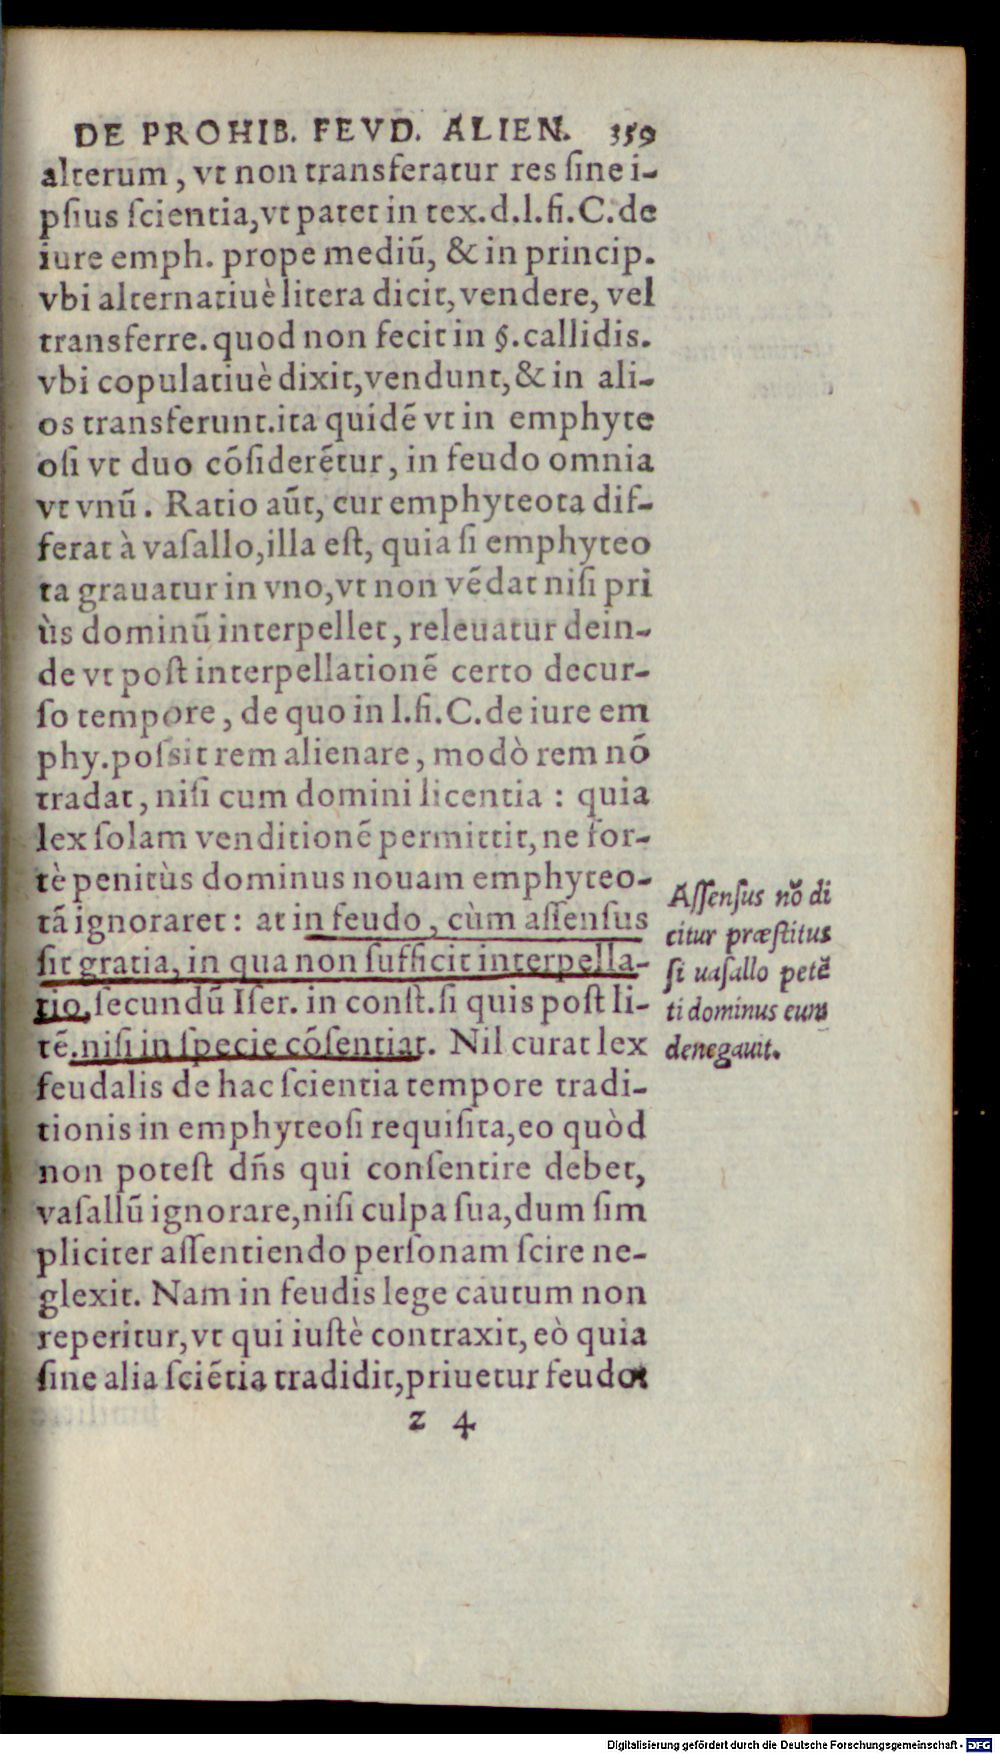 DE PROHIB. FEVD. ALIEN. 359
alterum, vt non transferatur res ſine i-
pſius ſcientia, vt patet in tex. d. l. fi. C. de
iure emph. prope mediū, & in princip.
vbi alternatiuè litera dicit, vendere, vel
transferre. quod non fecit in §. callidis.
vbi copulatiuè dixit, vendunt, & in ali-
os transferunt. ita quidē vt in emphyte
oſi vt duo cōſiderētur, in feudo omnia
vt vnū. Ratio aūt, cur emphyteota dif-
ferat à vaſallo, illa eſt, quia ſi emphyteo
ta grauatur in vno, vt non vēdat niſi pri
ùs dominū interpellet, releuatur dein-
de vt poſt interpellationē certo decur-
ſo tempore, de quo in l. fi. C. de iure em
phy. poſsit rem alienare, modò rem nō
tradat, niſi cum domini licentia : quia
lex ſolam venditionē permittit, ne for-
tè penitùs dominus nouam emphyteo-
tā ignoraret : at in feudo, cùm aſſenſus
ſit gratia, in qua non ſufficit interpella-
tio, ſecundū Iſer. in conſt. ſi quis poſt li-
tē. niſi in ſpecie cōſentiat. Nil curat lex
feudalis de hac ſcientia tempore tradi-
tionis in emphyteoſi requiſita, eo quòd
non poteſt dn̄s qui conſentire debet,
vaſallū ignorare, niſi culpa ſua, dum ſim
pliciter aſſentiendo perſonam ſcire ne-
glexit. Nam in feudis lege cautum non
reperitur, vt qui iuſtè contraxit, eò quia
ſine alia ſciētia tradidit, priuetur feudo:
z 4
Aſſenſus nō di
citur præſtitus
ſi uaſallo petē
ti dominus eum
denegauit.
Digitalisierung gefördert durch die Deutsche Forschungsgemeinschaft - DFG